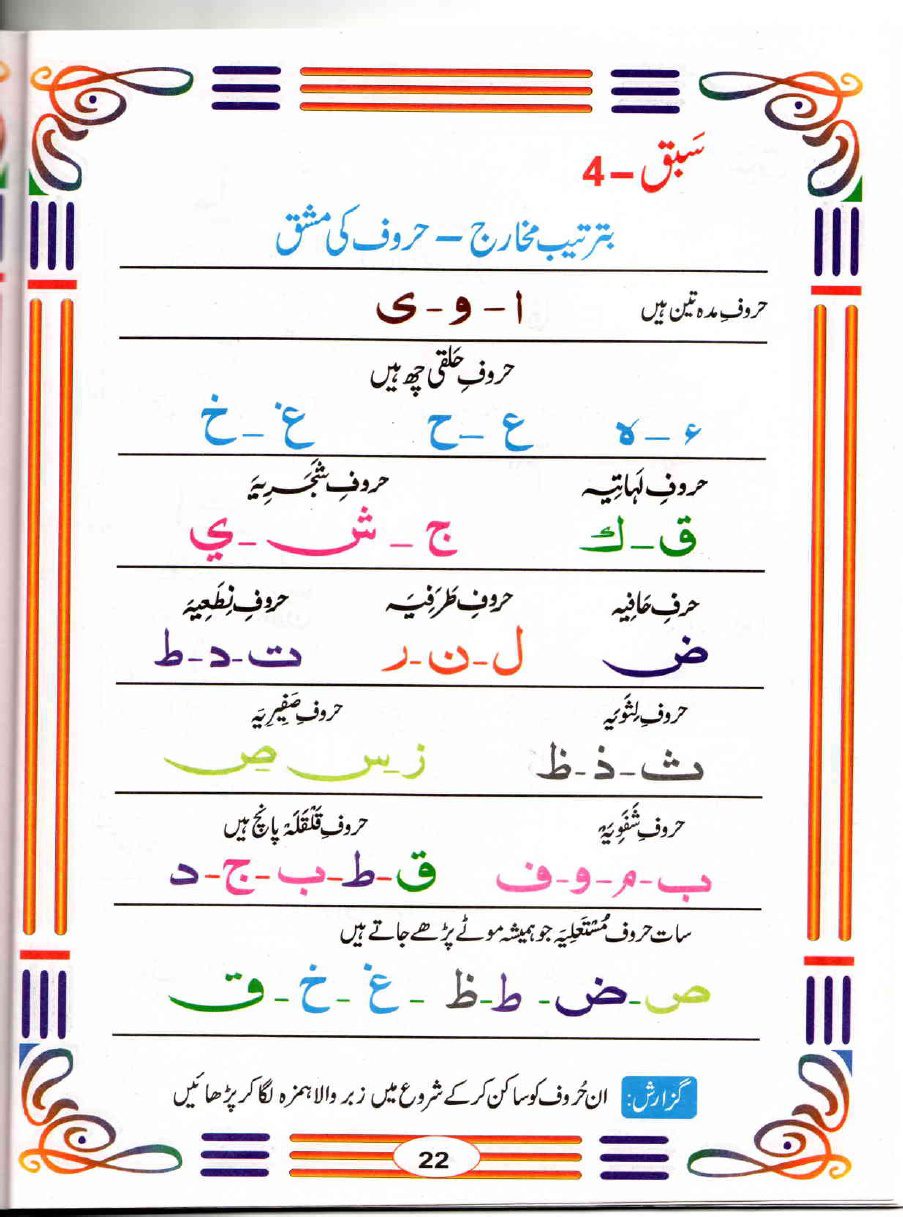 سَبق – 4
بترتیب مخارج – حروف کی مشق
حروفِ مدہ تین ہیں ا - و - ی
حروفِ حَلقی چھ ہیں
ء - ہ ع - ح غ - خ
حروفِ لَہاتِیہ حروفِ شَجَرِیَہ
ق - ك ج - ش - ي
حرفِ حَافِیہ حروفِ طَرَفِیَہ حروفِ نِطَعِیَہ
ض ل - ن - ر ت - د - ط
حروفِ لِثَوِیَہ حروفِ صَفِیرِیَہ
ث - ذ - ظ ز - س ص
حروفِ شَفَوِیَہ حروفِ قَلْقَلَہ پانچ ہیں
ب - م - و - ف ق - ط - ب - ج - د
سات حروف مُسْتَعَلِیَہ جو ہمیشہ موٹے پڑھے جاتے ہیں
ص - ض - ط - ظ - غ - خ - ق
گزارش: ان حُروف کو ساکن کر کے شروع میں زبر والا ہمزہ لگا کر پڑھائیں
22